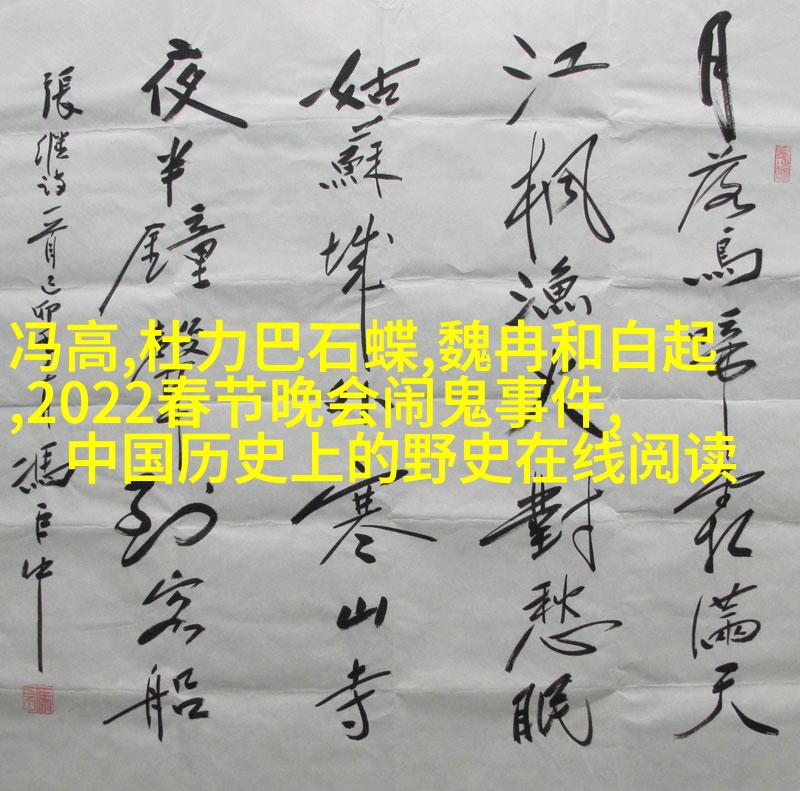 冯高,杜力巴石蝶,魏冉和白起
,2022春节晚会闹鬼事件,
中国历史上的野史在线阅读
月落烏啼霜滿天
江楓漁火對愁眠
姑蘇城外寒山寺
夜半鐘聲到客船
張继诗一首己卯馮中